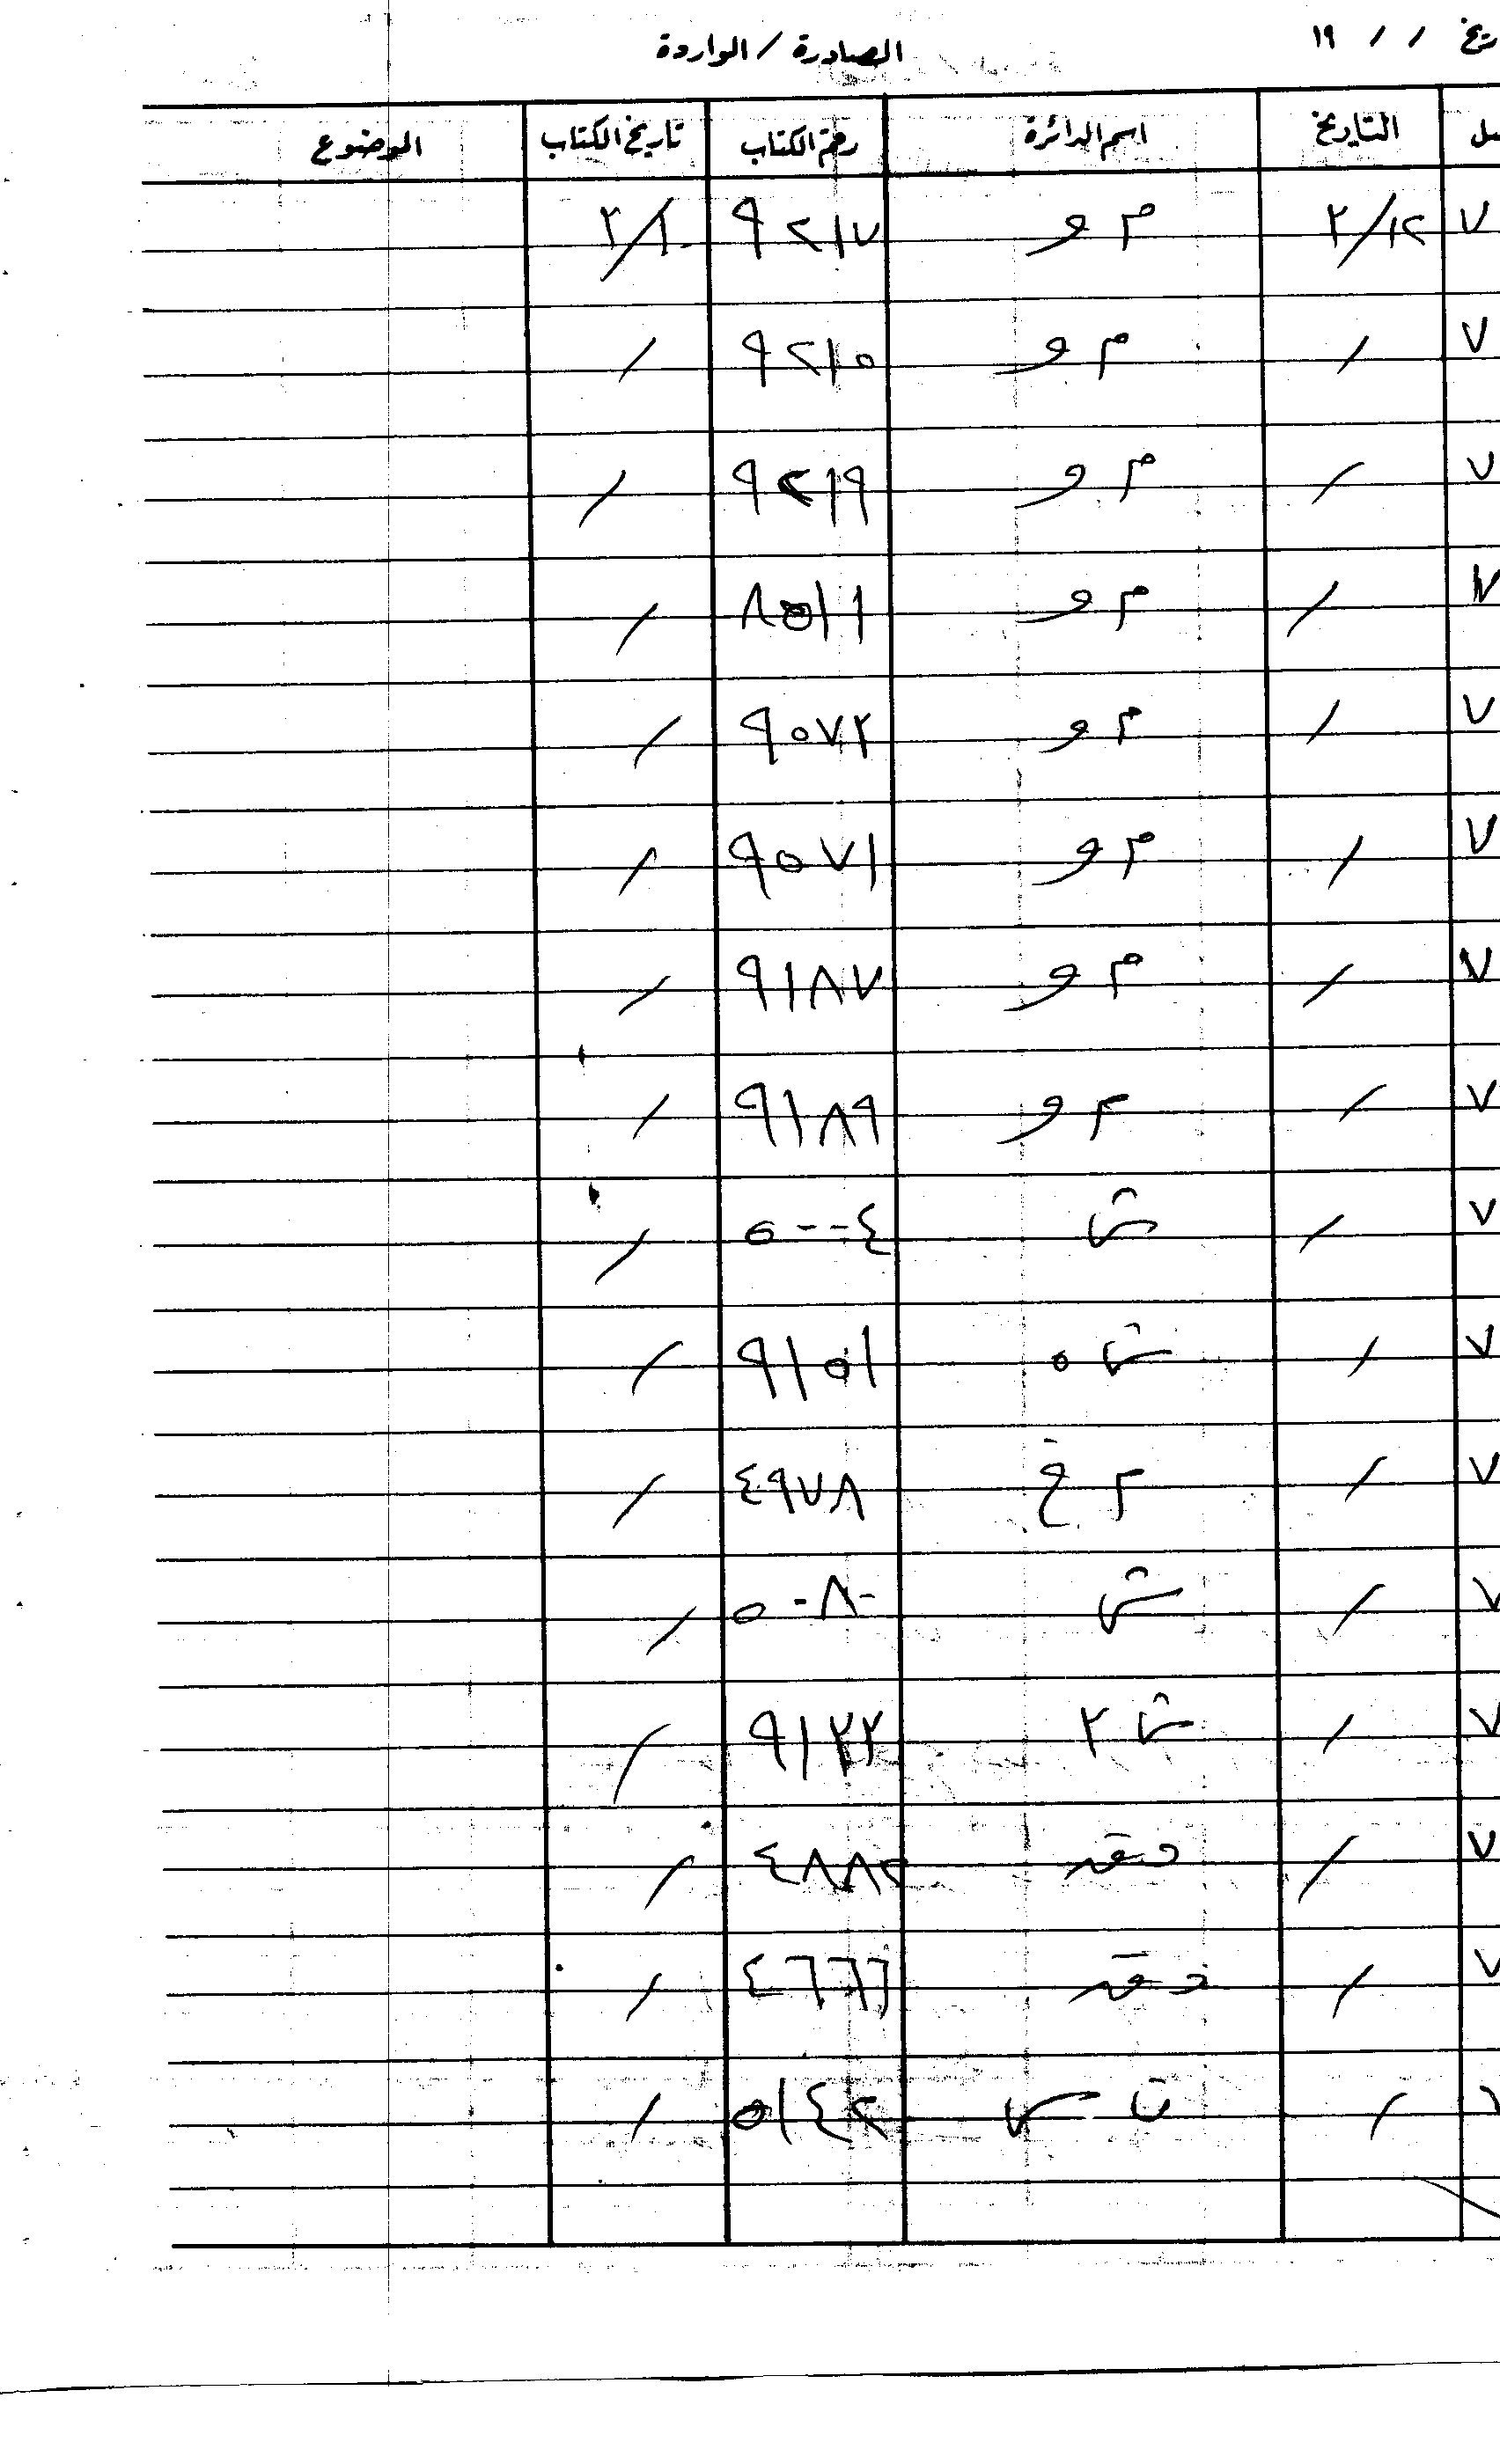 الصادرة / الواردة / / ١٩
التاريخ اسم الدائرة رقم الكتاب تاريخ الكتاب الموضوع
٧ ٢/١٢ م و ٩٢١٧ ٢/١٠
٧ / م و ٩٢١٥ /
٧ / م و ٩٢١٩ /
٧ / م و ٨٥١١ /
٧ / م و ٩٥٧٢ /
٧ / م و ٩٥٧١ /
٧ / م و ٩١٨٧ /
٧ / م و ٩١٨٩ /
٧ / ش ٥٠٠٤ /
٧ / ش ٥ ٩١٥١ /
٧ / م خ ٤٩٧٨ /
٧ / ش ٥٠٨٠ /
٧ / ش ٢ ٩١٢٢ /
٧ / ٤٨٨٢ /
٧ / ٤٦٦٦ /
/ ٥١٤٢ /